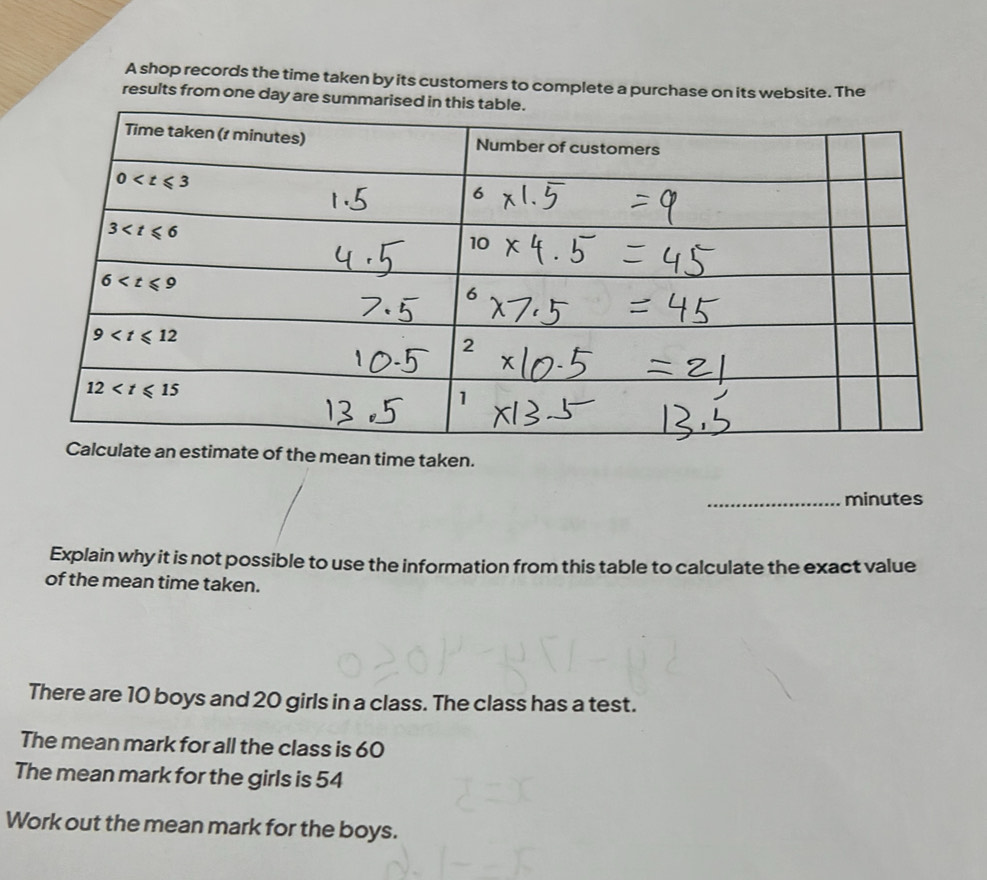 A shop records the time taken by its customers to complete a purchase on its website. The
results from one day are summarised in this table.
Time taken (t minutes) Number of customers
0 < t ⩽ 3 1.5 6 ×1.5 = 9
3 < t ⩽ 6 4.5 10 × 4.5 = 45
6 < t ⩽ 9 7.5 6 ×7.5 = 45
9 < t ⩽ 12 10.5 2 ×10.5 = 21
12 < t ⩽ 15 13.5 1 ×13.5 13.5
Calculate an estimate of the mean time taken.
...................... minutes
Explain why it is not possible to use the information from this table to calculate the exact value
of the mean time taken.
There are 10 boys and 20 girls in a class. The class has a test.
The mean mark for all the class is 60
The mean mark for the girls is 54
Work out the mean mark for the boys.